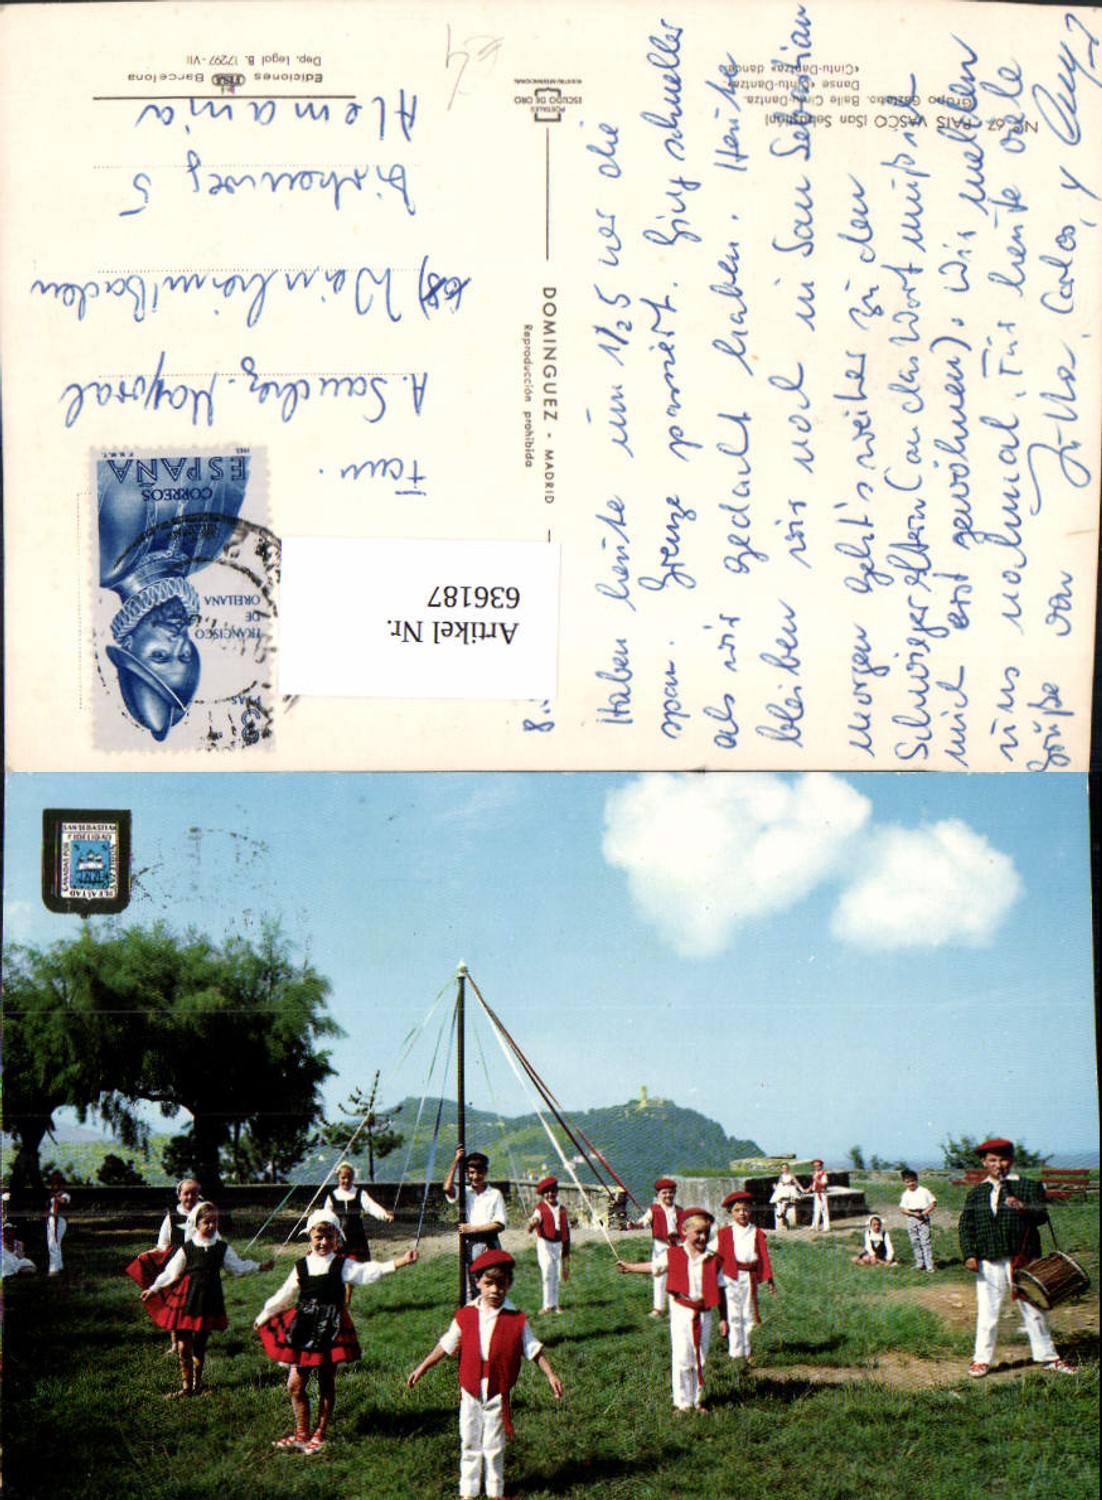 Nº 67 - PAIS VASCO (San Sebastián)
Grupo Gaztabo. Baile Cintu-Dantza.
Danse «Cintu-Dantza».
«Cintu-Dantza» dance.
Haben heute um 1/2 5 Uhr die
span. Grenze passiert. Ging schneller
als wir gedacht haben. Heute
bleiben wir noch in San Sebastian
morgen geht's weiter zu den
Schwiegereltern (an das Wort muß ich
mich erst gewöhnen). Wir melden
uns nochmal. Für heute viele
Grüße von Jutta, Carlos, y
POSTALES
ESCUDO DE ORO
DOMINGUEZ - MADRID
Reproducción prohibida
Ediciones FISA Barcelona
Dep. Legal B. 17297-VII
ESPAÑA
CORREOS
FRANCISCO
DE
ORELLANA
3
PTAS
F.N.M.T.
Fam.
A. Sanchez-Mayoral
68) Weinheim/Baden
Birkenweg 5
Alemania
Artikel Nr.
636187